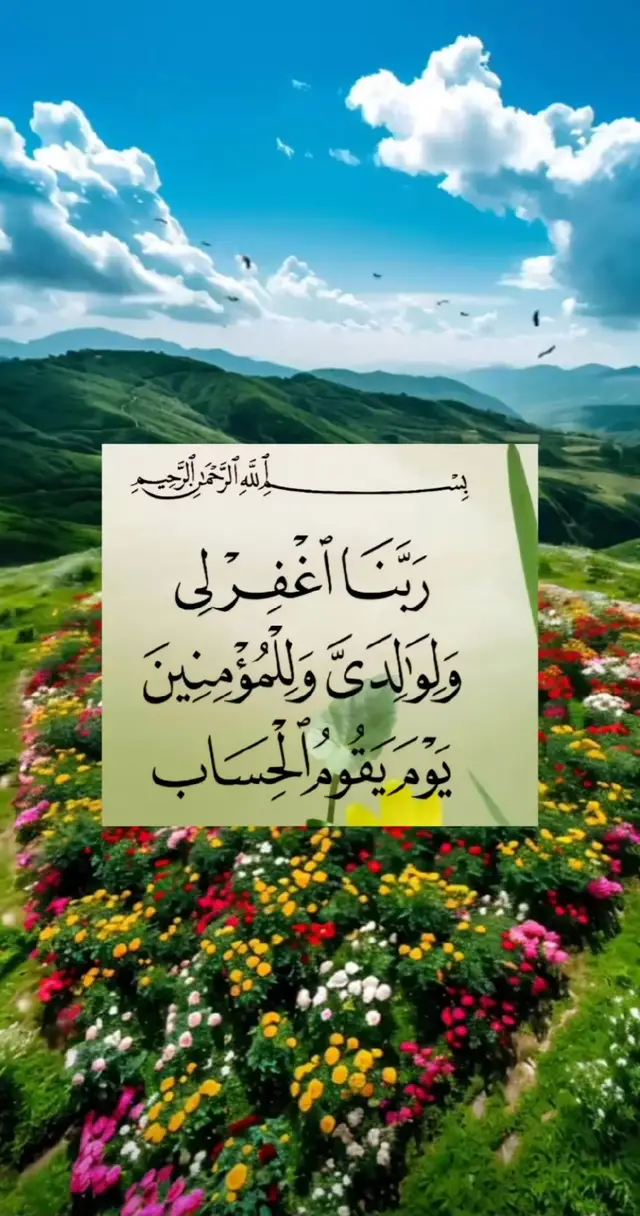 بِسْمِ ٱللَّهِ ٱلرَّحْمَٰنِ ٱلرَّحِيمِ
رَبَّنَا ٱغْفِرْ لِى
وَلِوَٰلِدَىَّ وَلِلْمُؤْمِنِينَ
يَوْمَ يَقُومُ ٱلْحِسَاب